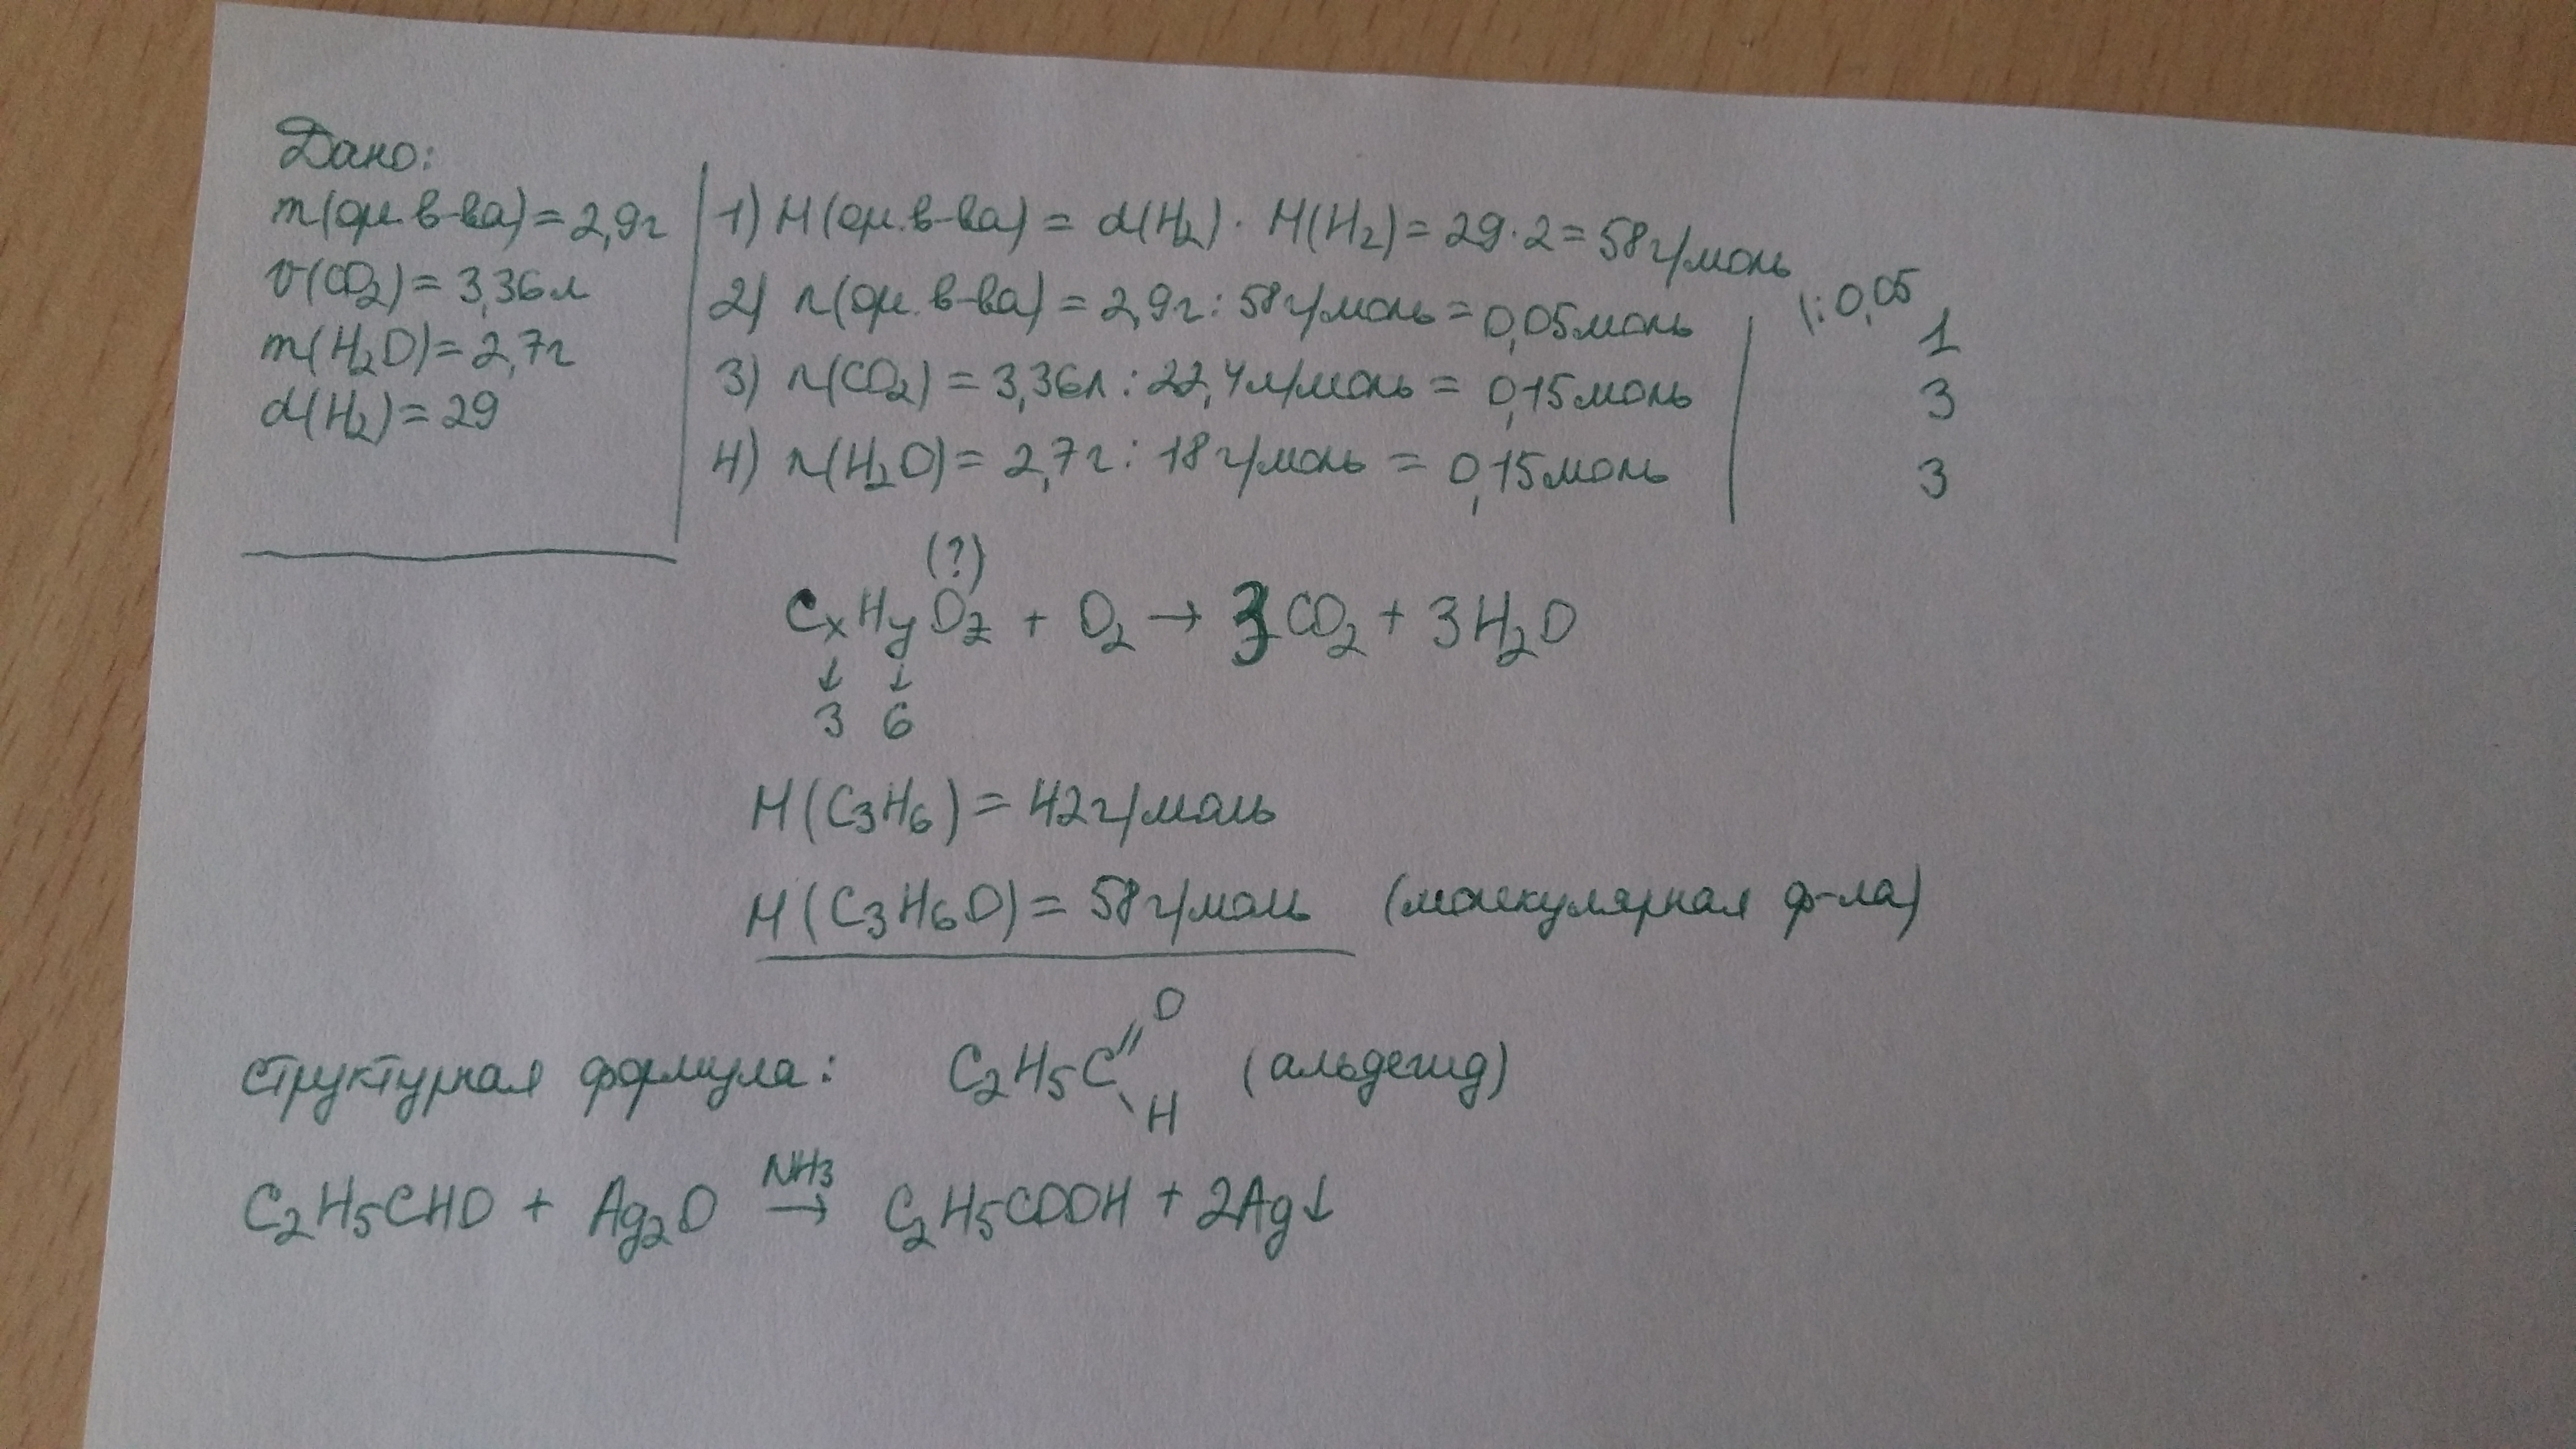 Дано:
m(орг. в-ва) = 2,9г
v(CO2) = 3,36л
m(H2O) = 2,7г
d(H2) = 29
1) M(орг. в-ва) = d(H2) · M(H2) = 29·2 = 58г/моль
2) n(орг. в-ва) = 2,9г : 58г/моль = 0,05моль | 1
\:0,05
3) n(CO2) = 3,36л : 22,4л/моль = 0,15моль | 3
4) n(H2O) = 2,7г : 18г/моль = 0,15моль | 3
(?)
CxHyOz + O2 → 3CO2 + 3H2O
↓ ↓
3 6
M(C3H6) = 42г/моль
M(C3H6O) = 58г/моль (молекулярная ф-ла)
O
структурная формула: C2H5C (альдегид)
H
NH3
C2H5CHO + Ag2O → C2H5COOH + 2Ag↓